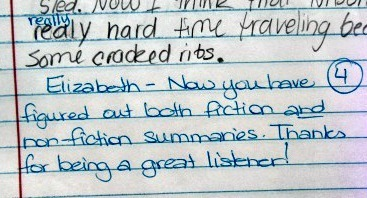 sled. Now I think that
really
realy hard time traveling bec
some cracked ribs.
Elizabeth - Now you have 4
figured out both fiction and
non-fiction summaries. Thanks
for being a great listener!